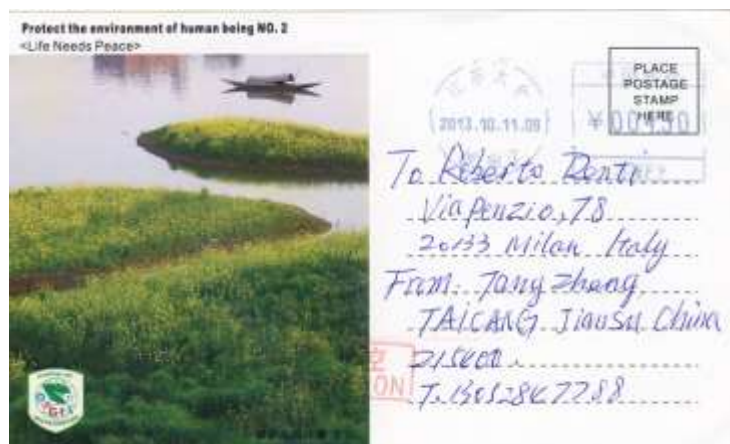 Protect the environment of human being NO. 2
<Life Needs Peace>
PLACE
POSTAGE
STAMP
HERE
2013.10.11.09
¥00450
To Roberto Denti
Via Penzio, 78
20133 Milan Italy
From Tang Zheng
TAICANG Jiausu China
ON